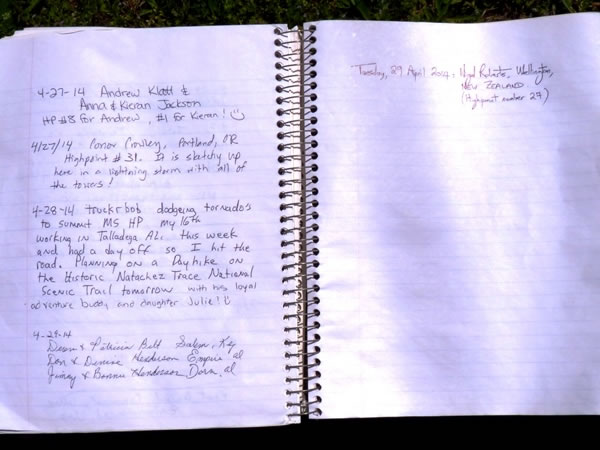 4-27-14 Andrew Klatt &
Anna & Kieran Jackson
HP #8 for Andrew, #1 for Kieran!
4/27/14 - Conor Crowley, Portland, OR
Highpoint # 31. It is sketchy up
here in a lightning storm with all of
the towers!
4-28-14 truckrbob dodgeing tornado's
to summit MS HP my 16th
working in Talladega AL. this week
and had a day off so I hit the
road. Planning on a Dayhike on
the Historic Natachez Trace National
Scenic Trail tomorrow with his loyal
adventure buddy and daughter Julie!
4-29-14
& Patricia Belt Salem, Ky
Don & Denise Henderson Empire, al
Jimmy & Bonnie Henderson Dora, al
Tuesday, 29 April 2014: Nigel Roberts, Wellington,
NEW ZEALAND.
(Highpoint number 27)